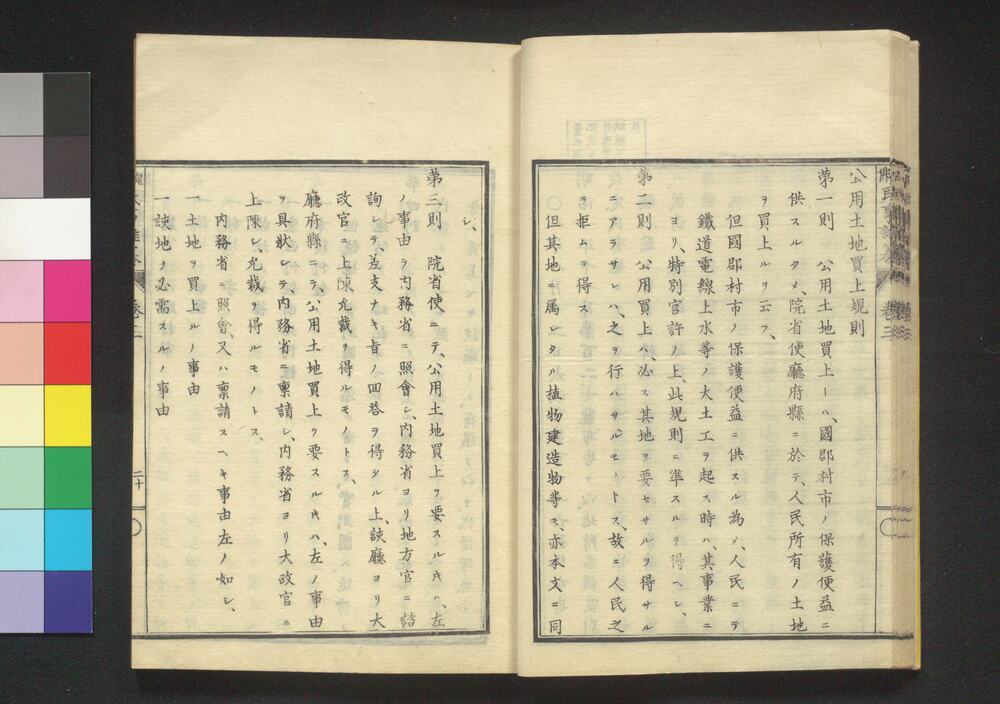 公用土地買上規則
第一則　公用土地買上ーハ、國郡村市ノ保護便益ニ
供スルタメ、院省使廳府縣ニ於テ、人民所有ノ土地
ヲ買上ルヲ云フ、
但國郡村市ノ保護便益ニ供スル為メ、人民ニテ
鐵道電線上水等ノ大土工ヲ起ス時ハ、其事業ニ
ヨリ、特別官許ノ上、此規則ニ準スルヲ得ヘシ、
第二則　公用買上ハ、必ス其地ヲ要セサルヲ得サル
ニアラサレハ、之ヲ行ハサルモノトス、故ニ人民之
ヲ拒ムヲ得ス
〇但其地ニ属シタル植物建造物等モ、亦本文ニ同
シ、
第三則　院省使ニテ、公用土地買上ヲ要スル𪜈ハ、左
ノ事由ヲ内務省ニ照會シ、内務省ヨリ地方官ニ諮
詢シテ差支ナキ旨ノ回答ヲ得タル上、該廳ヨリ大
政官ニ上陳允裁ヲ得ルモノトス、
廳府縣ニテ公用土地買上ヲ要スル𪜈ハ、左ノ事由
ヲ具狀シテ、内務省ニ稟請シ、内務省ヨリ大政官ニ
上陳シ、允裁ヲ得ルモノトス、
内務省ニ照會、又ハ稟請スヘキ事由左ノ如シ、
一土地ヲ買上ルノ事由
一該地ノ必需スルノ事由